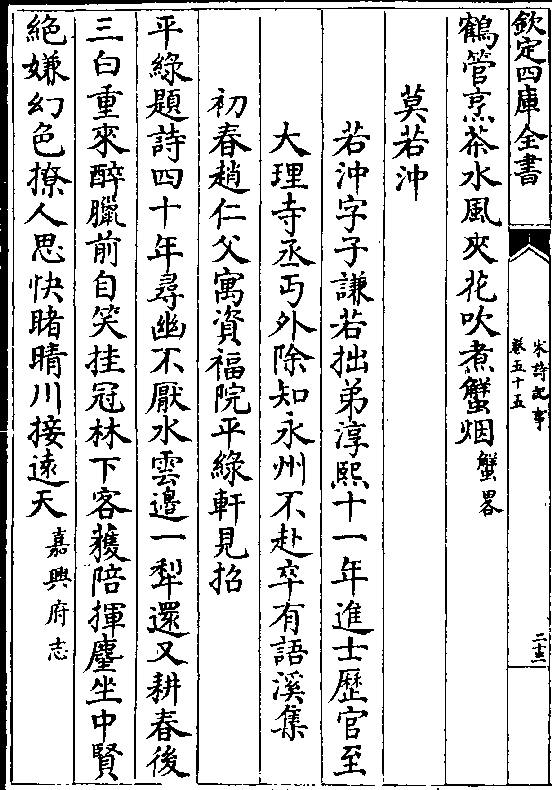 欽定四庫全書
宋詩紀事
卷五十五
二十三
鶴管烹茶水風夾花吹煮蟹烟蟹畧
莫若沖
若沖字子謙若拙弟淳熙十一年進士歷官至
大理寺丞丐外除知永州不赴卒有語溪集
初春趙仁父寓資福院平綠軒見招
平綠題詩四十年尋幽不厭水雲邊一犁還又耕春後
三白重來醉臘前自笑挂冠林下客獲陪揮麈坐中賢
絶嫌幻色撩人思快睹晴川接遠天嘉興府志